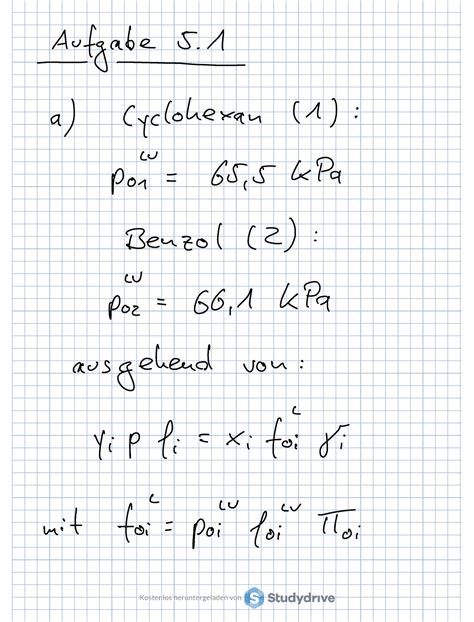 Aufgabe 5.1
a) Cyclohexan (1) :
p₀₁ᴸⱽ = 65,5 kPa
Benzol (2) :
p₀₂ᴸⱽ = 66,1 kPa
ausgehend von :
yᵢ p φᵢ = xᵢ f₀ᵢᴸ γᵢ
mit f₀ᵢᴸ = p₀ᵢᴸⱽ φ₀ᵢᴸⱽ π₀ᵢ
Kostenlos heruntergeladen von S Studydrive